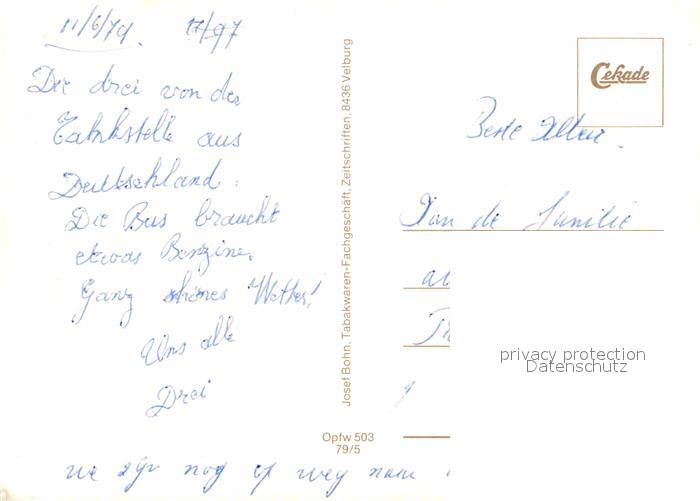 11/6/79. 17/97
Die drei von der
Tahkstelle aus
Deutschland.
Die Bus braucht
etwas Benzine.
Ganz shönes Wetter!
Uns alle
Drei
we zijn nog op weg naar
Josef Bohn, Tabakwaren-Fachgeschäft, Zeitschriften, 8436 Velburg
Opfw 503
79/5
Cekade
Beste
de Familie
privacy protection
Datenschutz